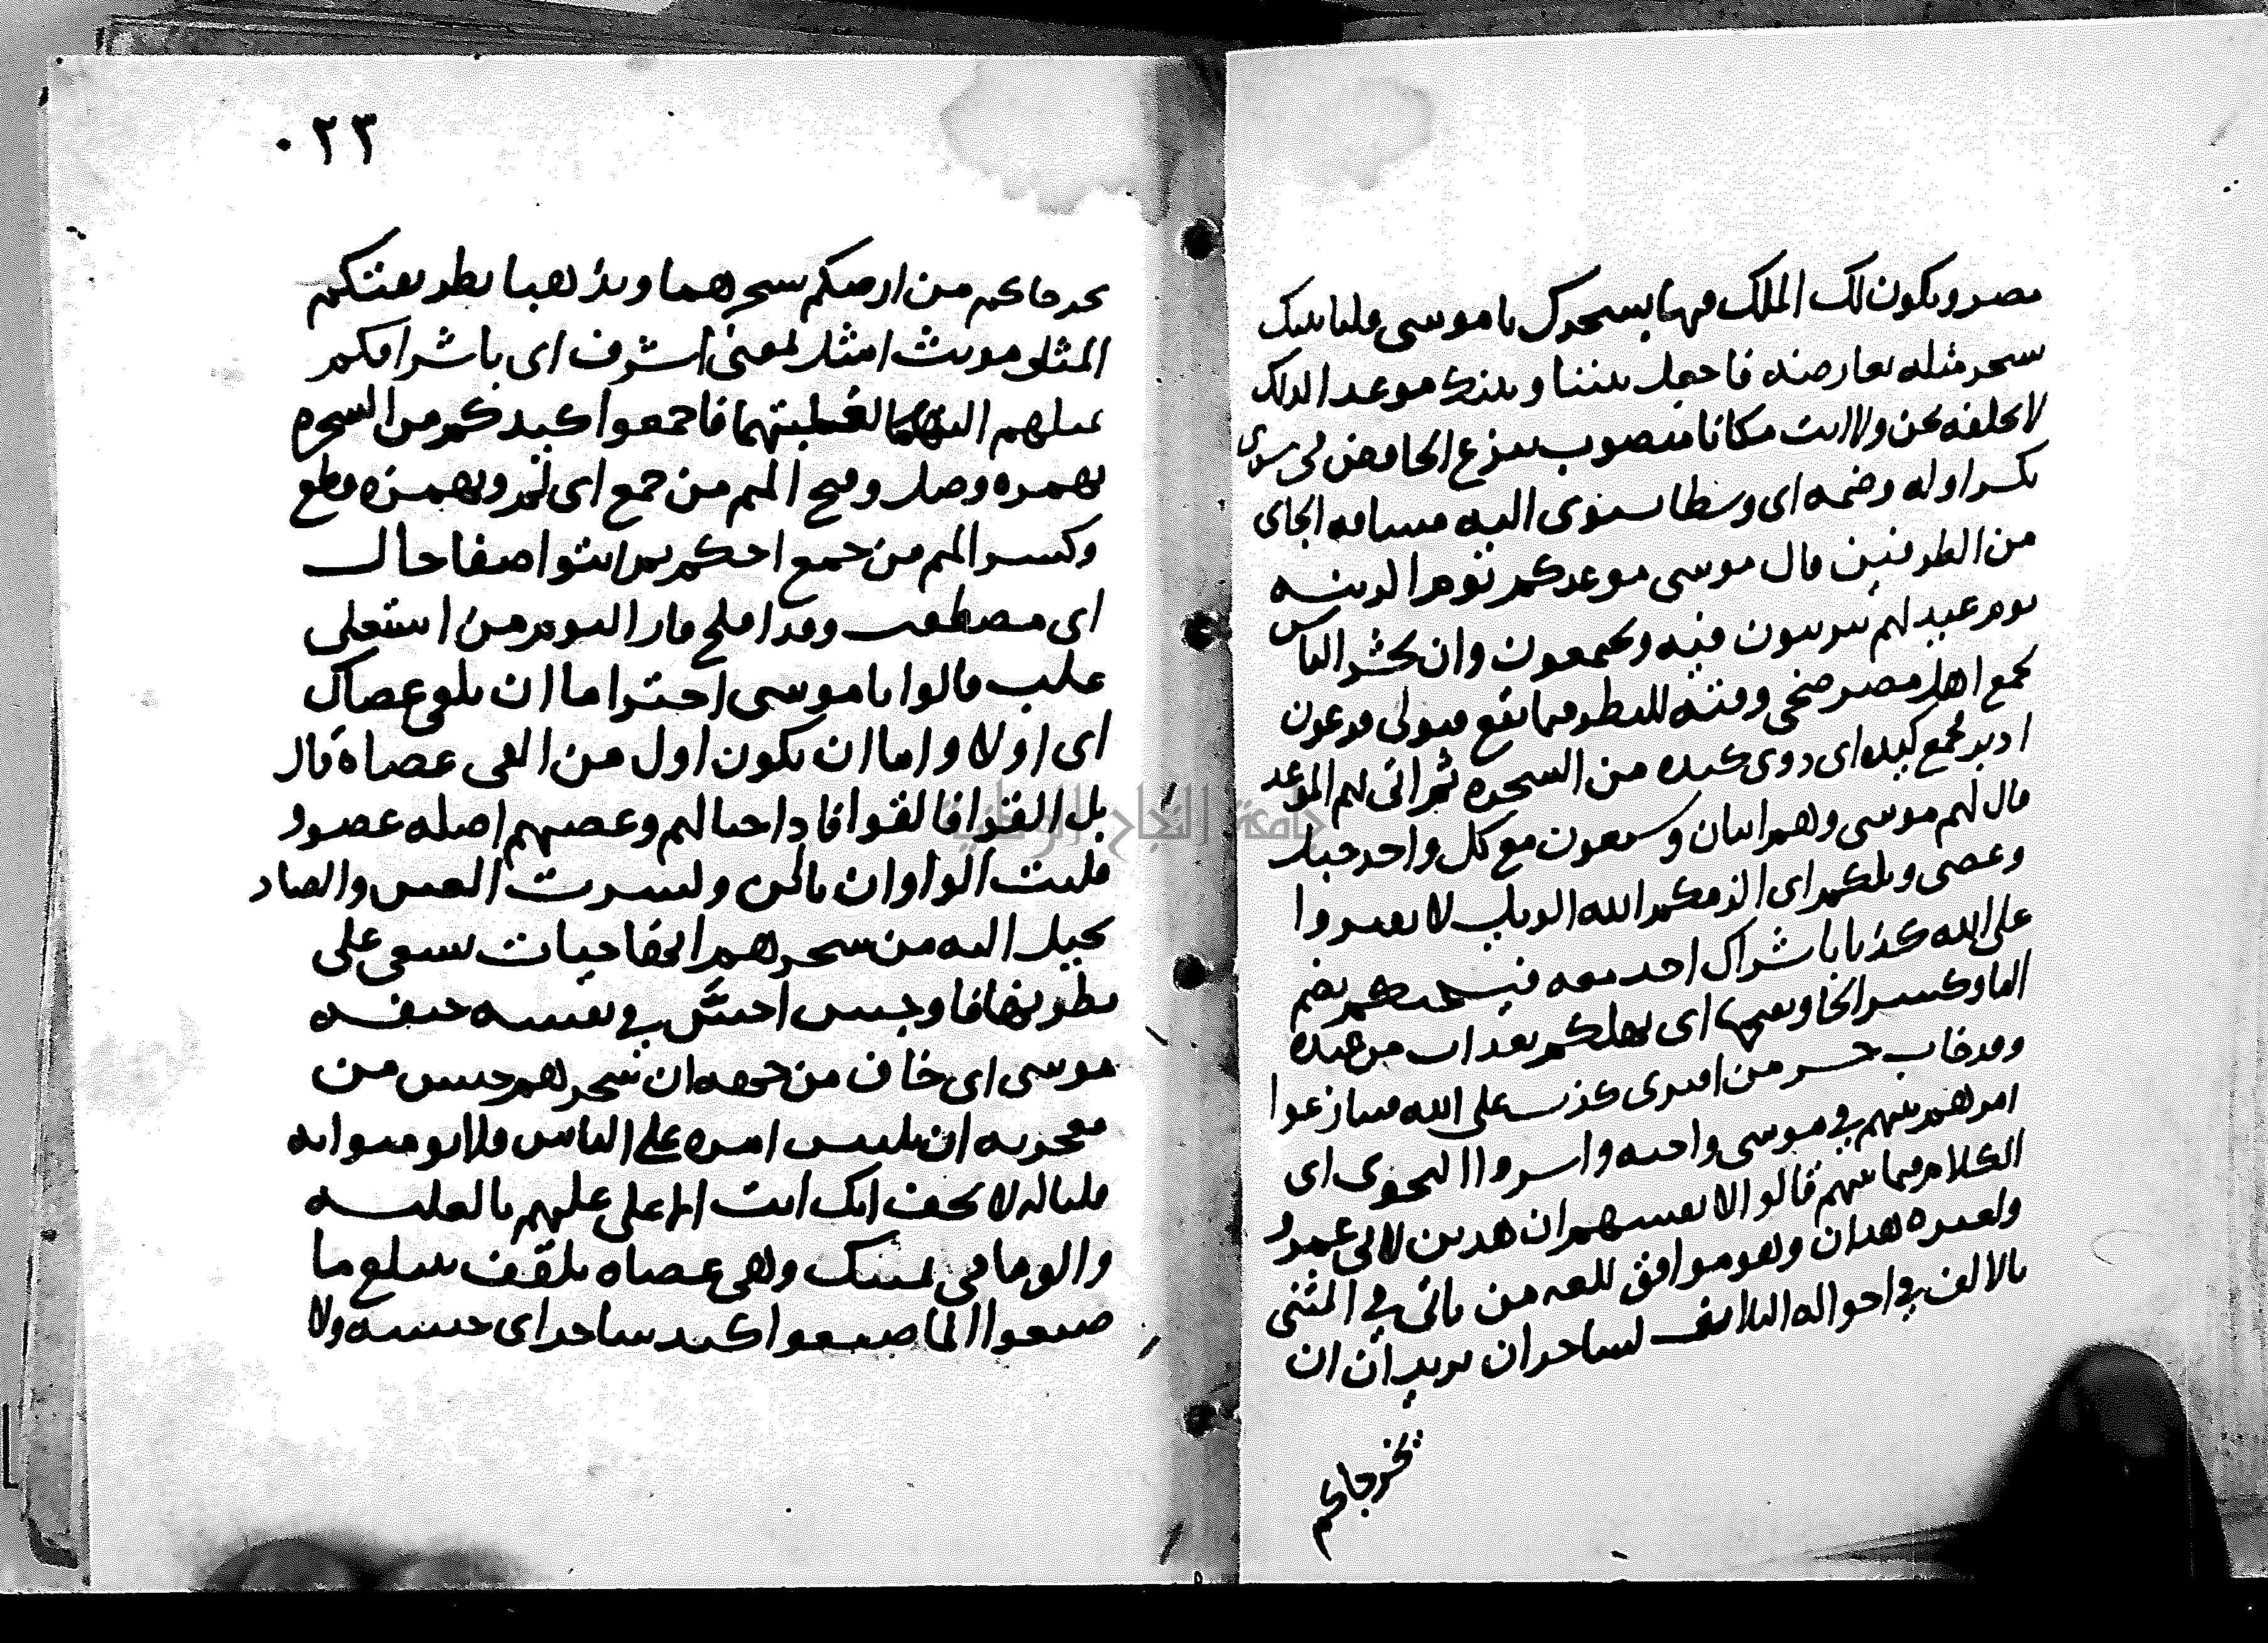 مصر ويكون لك الملك فيها بسحرك يا موسى فلنأتينك
سحر مثله يعارضه فاجعل بيننا وبينك موعدا لذلك
لا نخلفه نحن ولا انت مكانا منصوب بنزع الخافض في سوى
بكسر اوله وضمه اى وسطا يستوى اليه مسافه الجاى
من الطرفين قال موسى موعدكم يوم الزينه
يوم عيد لهم يتزينون فيه ويجتمعون وان يحشر الناس
يجمع اهل مصر ضحى وقته للنظر فيما يقع فتولى فرعون
ادبر فجمع كيده اى ذوى كيده من السحره ثم اتى لهم الموعد
قال لهم موسى وهم اثنان وسبعون مع كل واحد حبل
وعصى ويلكم اى الزمكم الله الويل لا تفتروا
على الله كذبا باشراك احد معه فيسحتكم بضم
اليا وكسر الحا وبفتحها اى يهلككم بعذاب من عنده
وقد خاب خسر من افترى كذب على الله فتنازعوا
امرهم بينهم في موسى واخيه واسروا النجوى اى
الكلام فيما بينهم قالوا لانفسهم ان هذين لابي عمرو
ولغيره هذان وهو موافق للغه من ياتى في المثنى
بالالف في احواله الثلاث لساحران يريدان ان
يخرجاكم
٠٢٣
يخرجاكم من ارضكم بسحرهما ويذهبا بطريقتكم
المثلى مونث امثل بمعنى اشرف اى باشرافكم
بميلهم اليهما لغلبتهما فاجمعوا كيدكم من السحره
بهمزه وصل وفتح الميم من جمع اى لم وبهمزه قطع
وكسر الميم من جمع احكم ثم ائتوا صفا حال
اى مصطفين وقد افلح فاز اليوم من استعلى
غلب قالوا يا موسى اختر اما ان تلقى عصاك
اى اولا واما ان نكون اول من القى عصاه قال
بل القوا فالقوا فاذا حبالهم وعصيهم اصله عصوو
قلبت الواوان يائين وكسرت العين والصاد
يخيل اليه من سحرهم انها حيات تسعى على
بطونها فاوجس احس في نفسه خيفه
موسى اى خاف من جهه ان سحرهم جنس من
معجزته ان يلبس امره على الناس فلا يومنوا به
قلنا له لا تخف انك انت الاعلى عليهم بالغلبه
والق ما في يمينك وهي عصاه تلقف تبتلع ما
صنعوا انما صنعوا كيد ساحر اى جنسه ولا